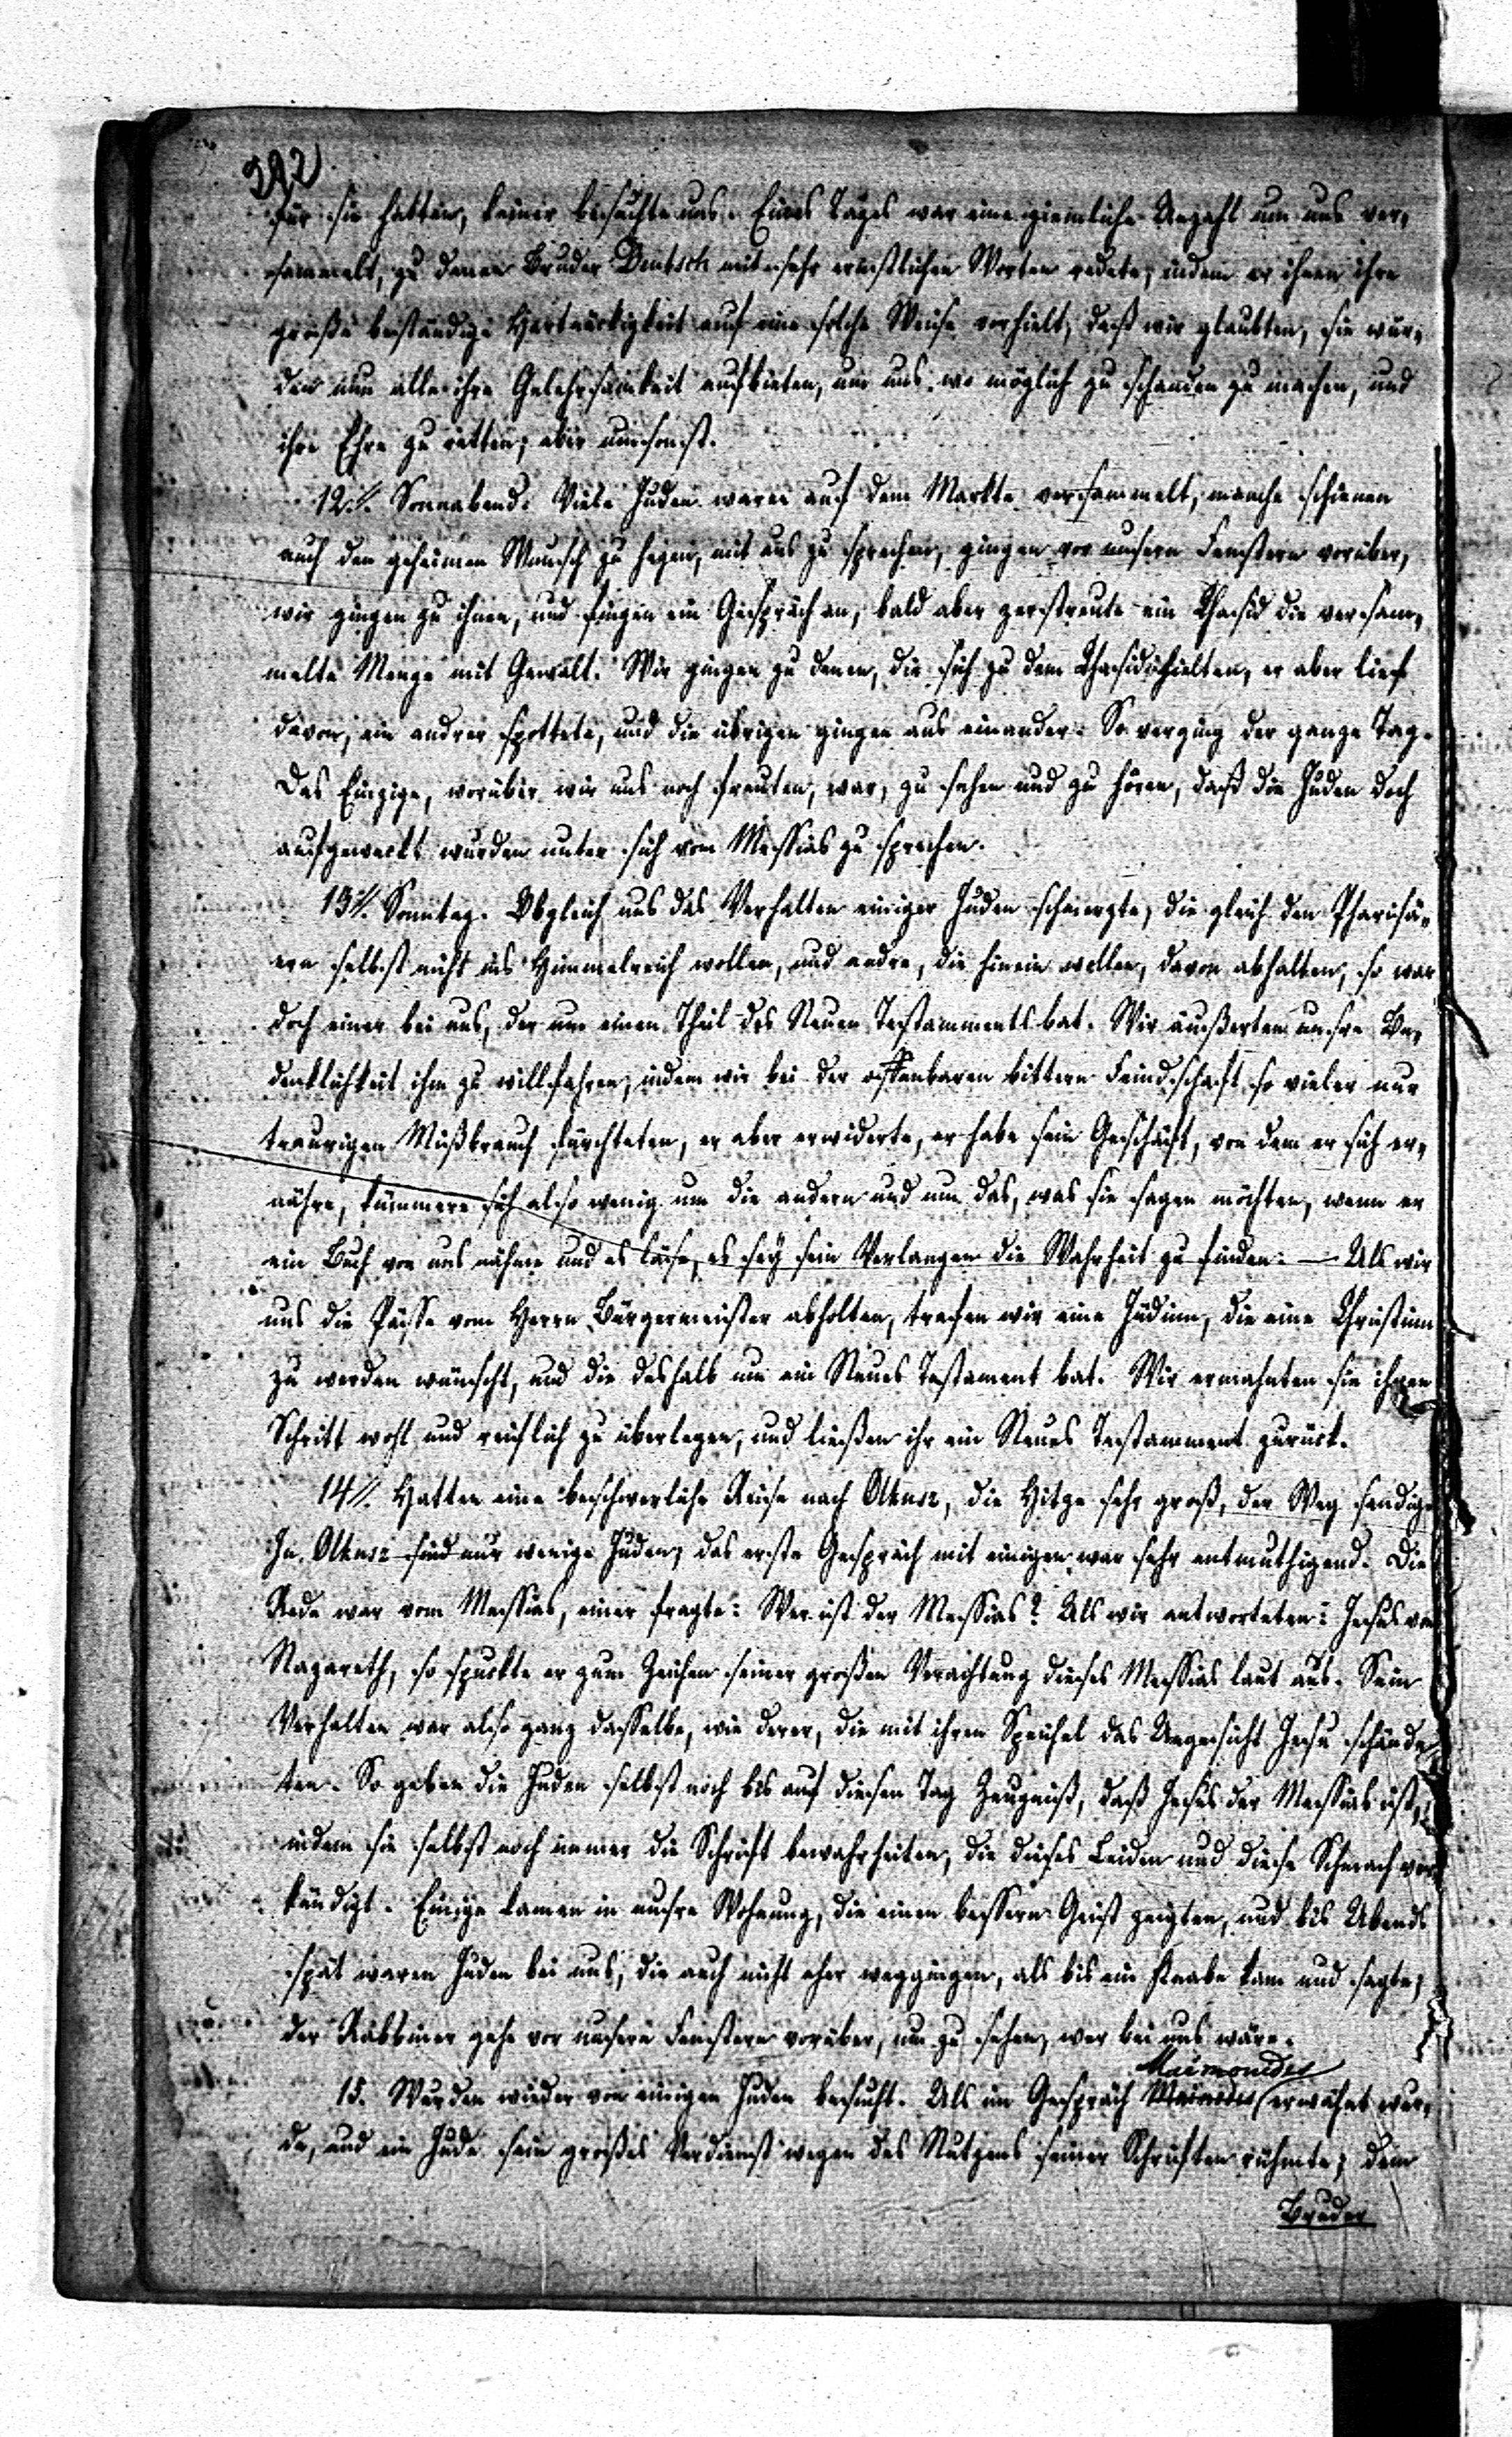 292
für sie hatten, keiner besuchte uns. Eines Tages war eine ziemliche Anzahl um uns ver-
sammelt, zu denen Bruder Deutsch mit sehr ernstlichen Worten redete, indem er ihnen ihre
große beständige Hartnäckigkeit auf eine solche Weise vorhielt, daß wir glaubten, sie wür-
den nun alle ihre Gelehrsamkeit aufbieten, um uns wo möglich zu schanden zu machen, und
ihre Ehre zu retten; aber umsonst.
12.// Sonnabend. Viele Juden waren auf dem Markte versammelt, manche schienen
auch den geheimen Wunsch zu hegen, mit uns zu sprechen, gingen vor unsern Fenstern vorüber,
wir gingen zu ihnen, und fingen ein Gespräch an, bald aber zerstreute ein Chasid die versam-
melte Menge mit Gewalt. Wir gingen zu denen, die sich zu dem Chasid hielten, er aber lief
davon, ein andrer spottete, und die übrigen gingen aus einander. So verging der ganze Tag.
Das Einzige, worüber wir uns noch freuten, war, zu sehen und zu hören, daß die Juden doch
aufgeweckt wurden unter sich vom Messias zu sprechen.
13.// Sonntag. Obgleich uns das Verhalten einiger Juden schmerzte, die gleich den Pharisä-
ern selbst nicht ins Himmelreich wollen, und andre, die hinein wollen, davon abhalten, so war
doch einer bei uns, der um einen Theil des Neuen Testamments bat. Wir äußerten unsre Be-
denklichkeit ihm zu willfahren, indem wir bei der offenbaren bittern Feindschaft so vieler nur
traurigen Mißbrauch fürchteten, er aber erwiderte, er habe sein Geschäft, von dem er sich er-
nähre, kümmere sich also wenig um die andern und um das, was sie sagen möchten, wenn er
ein Buch von uns nähme und es läse, es sey sein Verlangen die Wahrheit zu finden. — Als wir
uns die Pässe vom Herrn Bürgermeister abholten, trafen wir eine Jüdinn, die eine Christinn
zu werden wünscht, und die deshalb um ein Neues Testament bat. Wir ermahnten sie ihren
Schritt wohl und reiflich zu überlegen, und ließen ihr ein Neues Testamment zurück.
14.// Hatten eine beschwerliche Reise nach Olkusz, die Hitze sehr groß, der Weg sandig.
In Olkusz sind nur wenige Juden, das erste Gespräch mit einigen war sehr entmuthigend. Die
Rede war vom Messias, einer fragte: Wer ist der Messias? Als wir antworteten: Jesus von
Nazareth, so spuckte er zum Zeichen seiner großen Verachtung dieses Messias laut aus. Sein
Verhalten war also ganz dasselbe, wie derer, die mit ihrem Speichel das Angesicht Jesu schände-
ten. So geben die Juden selbst noch bis auf diesen Tag Zeugniß, daß Jesus der Messias ist,
indem sie selbst noch immer die Schrift bewahrheiten, die dieses Leiden und diese Schmach ver-
kündigt. Einige kamen in unsre Wohnung, die einen bessern Geist zeigten, und bis Abends
spät waren Juden bei uns, die auch nicht eher weggingen, als bis ein Knabe kam und sagte,
der Rabbiner gehe vor unsern Fenstern vorüber, um zu sehen, wer bei uns wäre.
Maimonides
15. Wurden wieder von einigen Juden besucht. Als im Gespräch erwähnt wur-
de, und ein Jude sein großes Verdienst wegen des Nutzens seiner Schriften rühmte, dem
Bruder